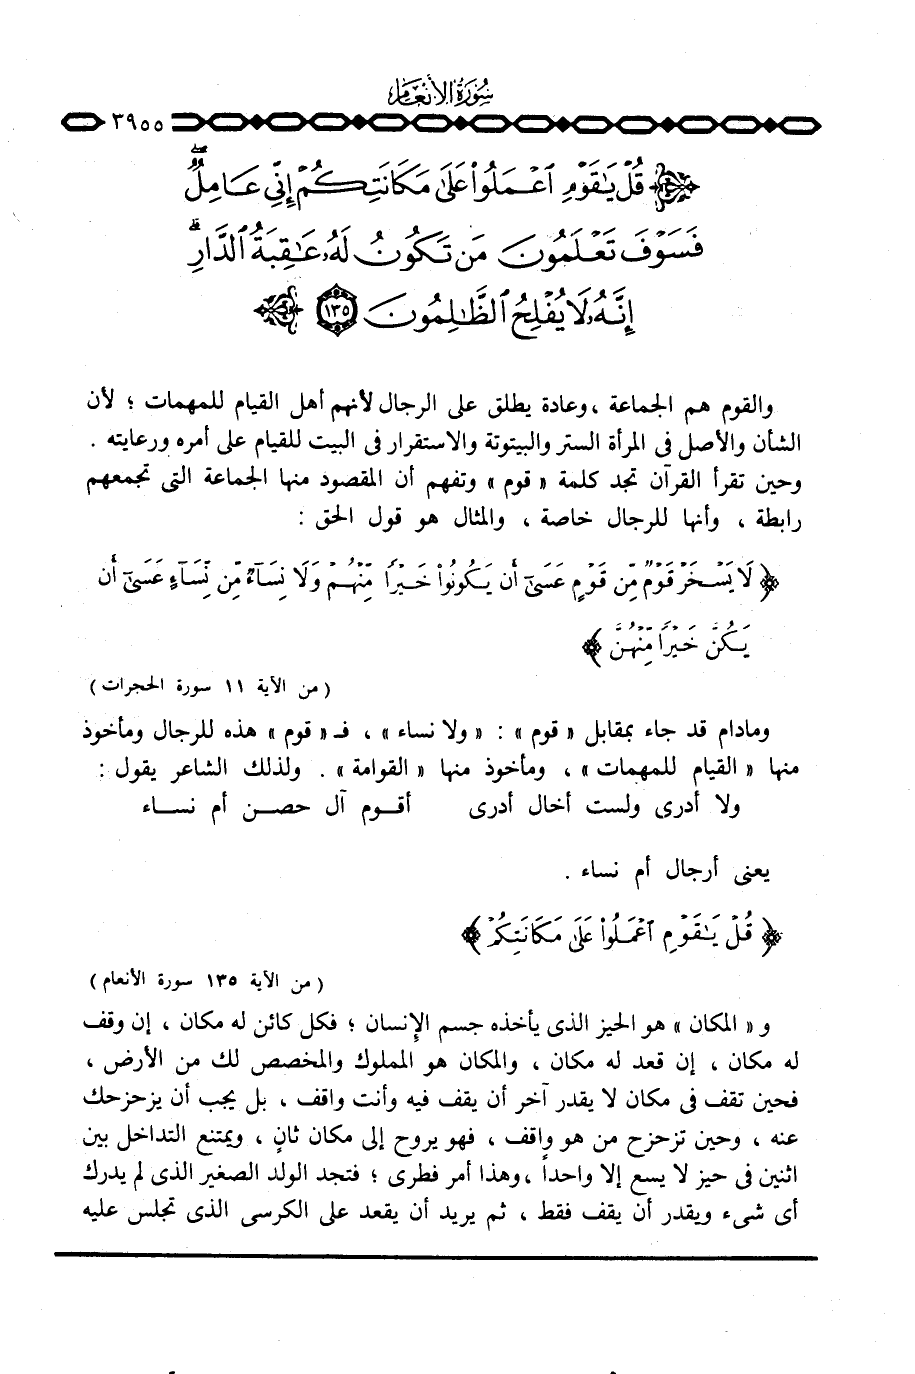 سُورَةُ الأَنْعَامِ
٣٩٥٥
قُلْ يَٰقَوْمِ ٱعْمَلُوا۟ عَلَىٰ مَكَانَتِكُمْ إِنِّى عَامِلٌ ۖ
فَسَوْفَ تَعْلَمُونَ مَن تَكُونُ لَهُۥ عَٰقِبَةُ ٱلدَّارِ ۗ
إِنَّهُۥ لَا يُفْلِحُ ٱلظَّٰلِمُونَ ١٣٥
والقوم هم الجماعة ، وعادة يطلق على الرجال لأنهم أهل القيام للمهمات ؛ لأن
الشأن والأصل فى المرأة الستر والبيتوتة والاستقرار فى البيت للقيام على أمره ورعايته .
وحين تقرأ القرآن تجد كلمة « قوم » وتفهم أن المقصود منها الجماعة التى تجمعهم
رابطة ، وأنها للرجال خاصة ، والمثال هو قول الحق :
﴿ لَا يَسْخَرْ قَوْمٌ مِّن قَوْمٍ عَسَىٰٓ أَن يَكُونُوا۟ خَيْرًا مِّنْهُمْ وَلَا نِسَآءٌ مِّن نِّسَآءٍ عَسَىٰٓ أَن
يَكُنَّ خَيْرًا مِّنْهُنَّ ﴾
( من الآية ١١ سورة الحجرات )
ومادام قد جاء بمقابل « قوم » : « ولا نساء » ، فـ « قوم » هذه للرجال ومأخوذ
منها « القيام للمهمات » ، ومأخوذ منها « القوامة » . ولذلك الشاعر يقول :
ولا أدرى ولست أخال أدرى أقوم آل حصن أم نساء
يعنى أرجال أم نساء .
﴿ قُلْ يَٰقَوْمِ ٱعْمَلُوا۟ عَلَىٰ مَكَانَتِكُمْ ﴾
( من الآية ١٣٥ سورة الأنعام )
و « المكان » هو الحيز الذى يأخذه جسم الإنسان ؛ فكل كائن له مكان ، إن وقف
له مكان ، إن قعد له مكان ، والمكان هو المملوك والمخصص لك من الأرض ،
فحين تقف فى مكان لا يقدر آخر أن يقف فيه وأنت واقف ، بل يجب أن يزحزحك
عنه ، وحين تزحزح من هو واقف ، فهو يروح إلى مكان ثانٍ ، ويمتنع التداخل بين
اثنين فى حيز لا يسع إلا واحداً ، وهذا أمر فطرى ؛ فتجد الولد الصغير الذى لم يدرك
أى شىء ويقدر أن يقف فقط ، ثم يريد أن يقعد على الكرسى الذى تجلس عليه